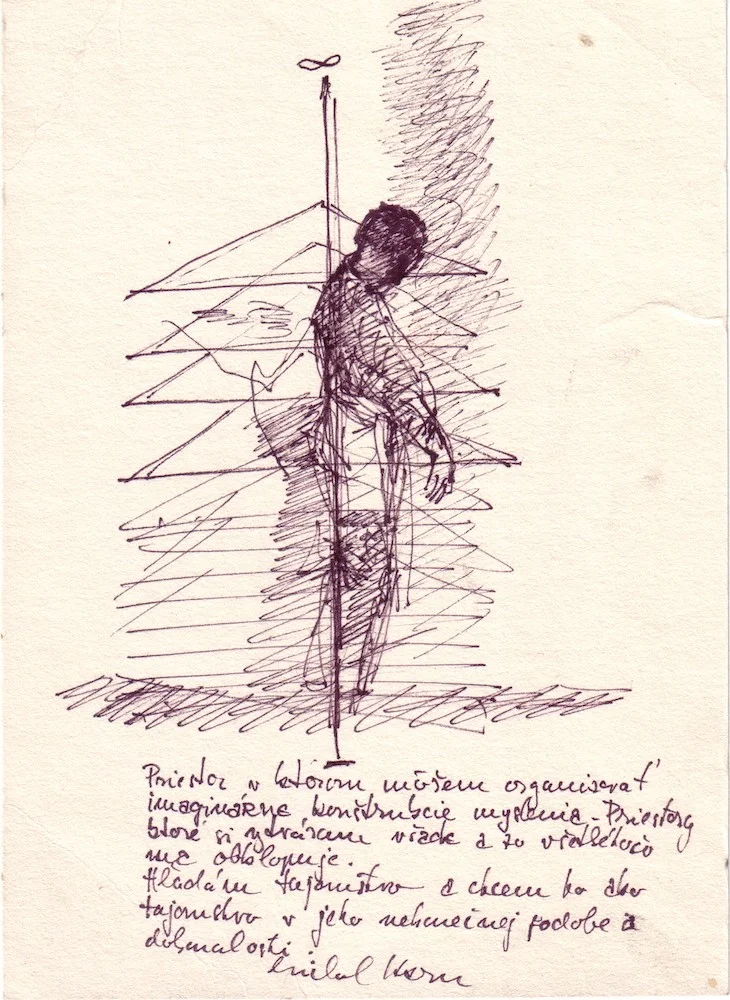 Priestor v ktorom môžem organisovať
imaginárne konštrukcie myslenia. Priestory
ktoré si vytváram všade a zo všetkého čo
ma obklopuje.
Hľadám tajomstvo a chcem ho ako
tajomstvo v jeho nekonečnej podobe a
dokonalosti.
Michal Kern